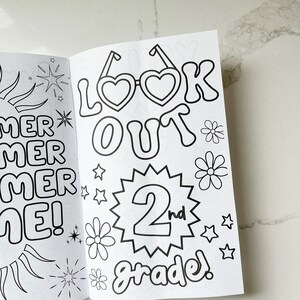 MER
MMER
MMER
ME!
LOOK
OUT
2nd
grade!